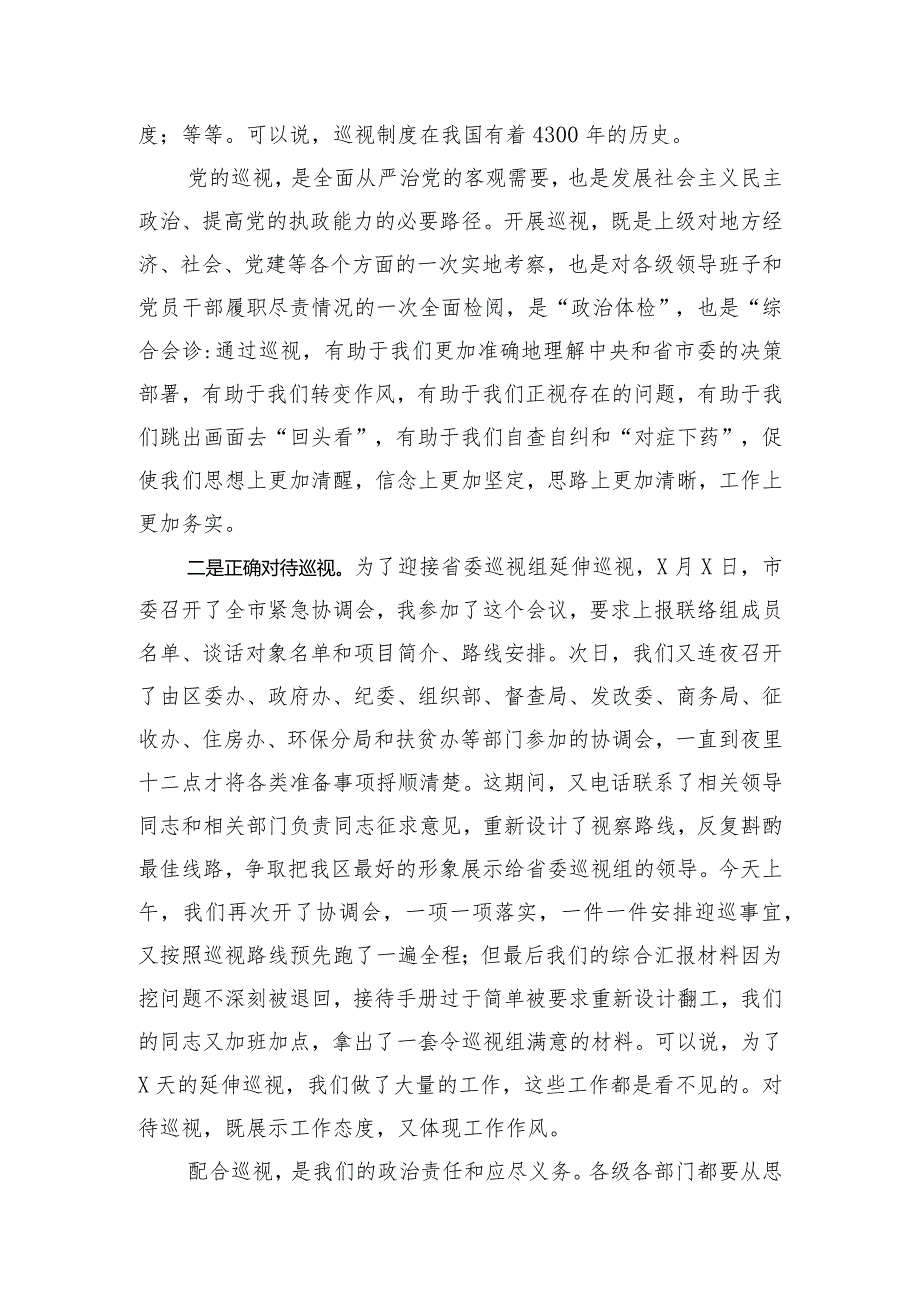 度；等等。可以说，巡视制度在我国有着 4300 年的历史。
党的巡视，是全面从严治党的客观需要，也是发展社会主义民主
政治、提高党的执政能力的必要路径。开展巡视，既是上级对地方经
济、社会、党建等各个方面的一次实地考察，也是对各级领导班子和
党员干部履职尽责情况的一次全面检阅，是“政治体检”，也是“综
合会诊:通过巡视，有助于我们更加准确地理解中央和省市委的决策
部署，有助于我们转变作风，有助于我们正视存在的问题，有助于我
们跳出画面去“回头看”，有助于我们自查自纠和“对症下药”，促
使我们思想上更加清醒，信念上更加坚定，思路上更加清晰，工作上
更加务实。
二是正确对待巡视。为了迎接省委巡视组延伸巡视，X 月 X 日，市
委召开了全市紧急协调会，我参加了这个会议，要求上报联络组成员
名单、谈话对象名单和项目简介、路线安排。次日，我们又连夜召开
了由区委办、政府办、纪委、组织部、督查局、发改委、商务局、征
收办、住房办、环保分局和扶贫办等部门参加的协调会，一直到夜里
十二点才将各类准备事项捋顺清楚。这期间，又电话联系了相关领导
同志和相关部门负责同志征求意见，重新设计了视察路线，反复斟酌
最佳线路，争取把我区最好的形象展示给省委巡视组的领导。今天上
午，我们再次开了协调会，一项一项落实，一件一件安排迎巡事宜，
又按照巡视路线预先跑了一遍全程；但最后我们的综合汇报材料因为
挖问题不深刻被退回，接待手册过于简单被要求重新设计翻工，我们
的同志又加班加点，拿出了一套令巡视组满意的材料。可以说，为了
X 天的延伸巡视，我们做了大量的工作，这些工作都是看不见的。对
待巡视，既展示工作态度，又体现工作作风。
配合巡视，是我们的政治责任和应尽义务。各级各部门都要从思